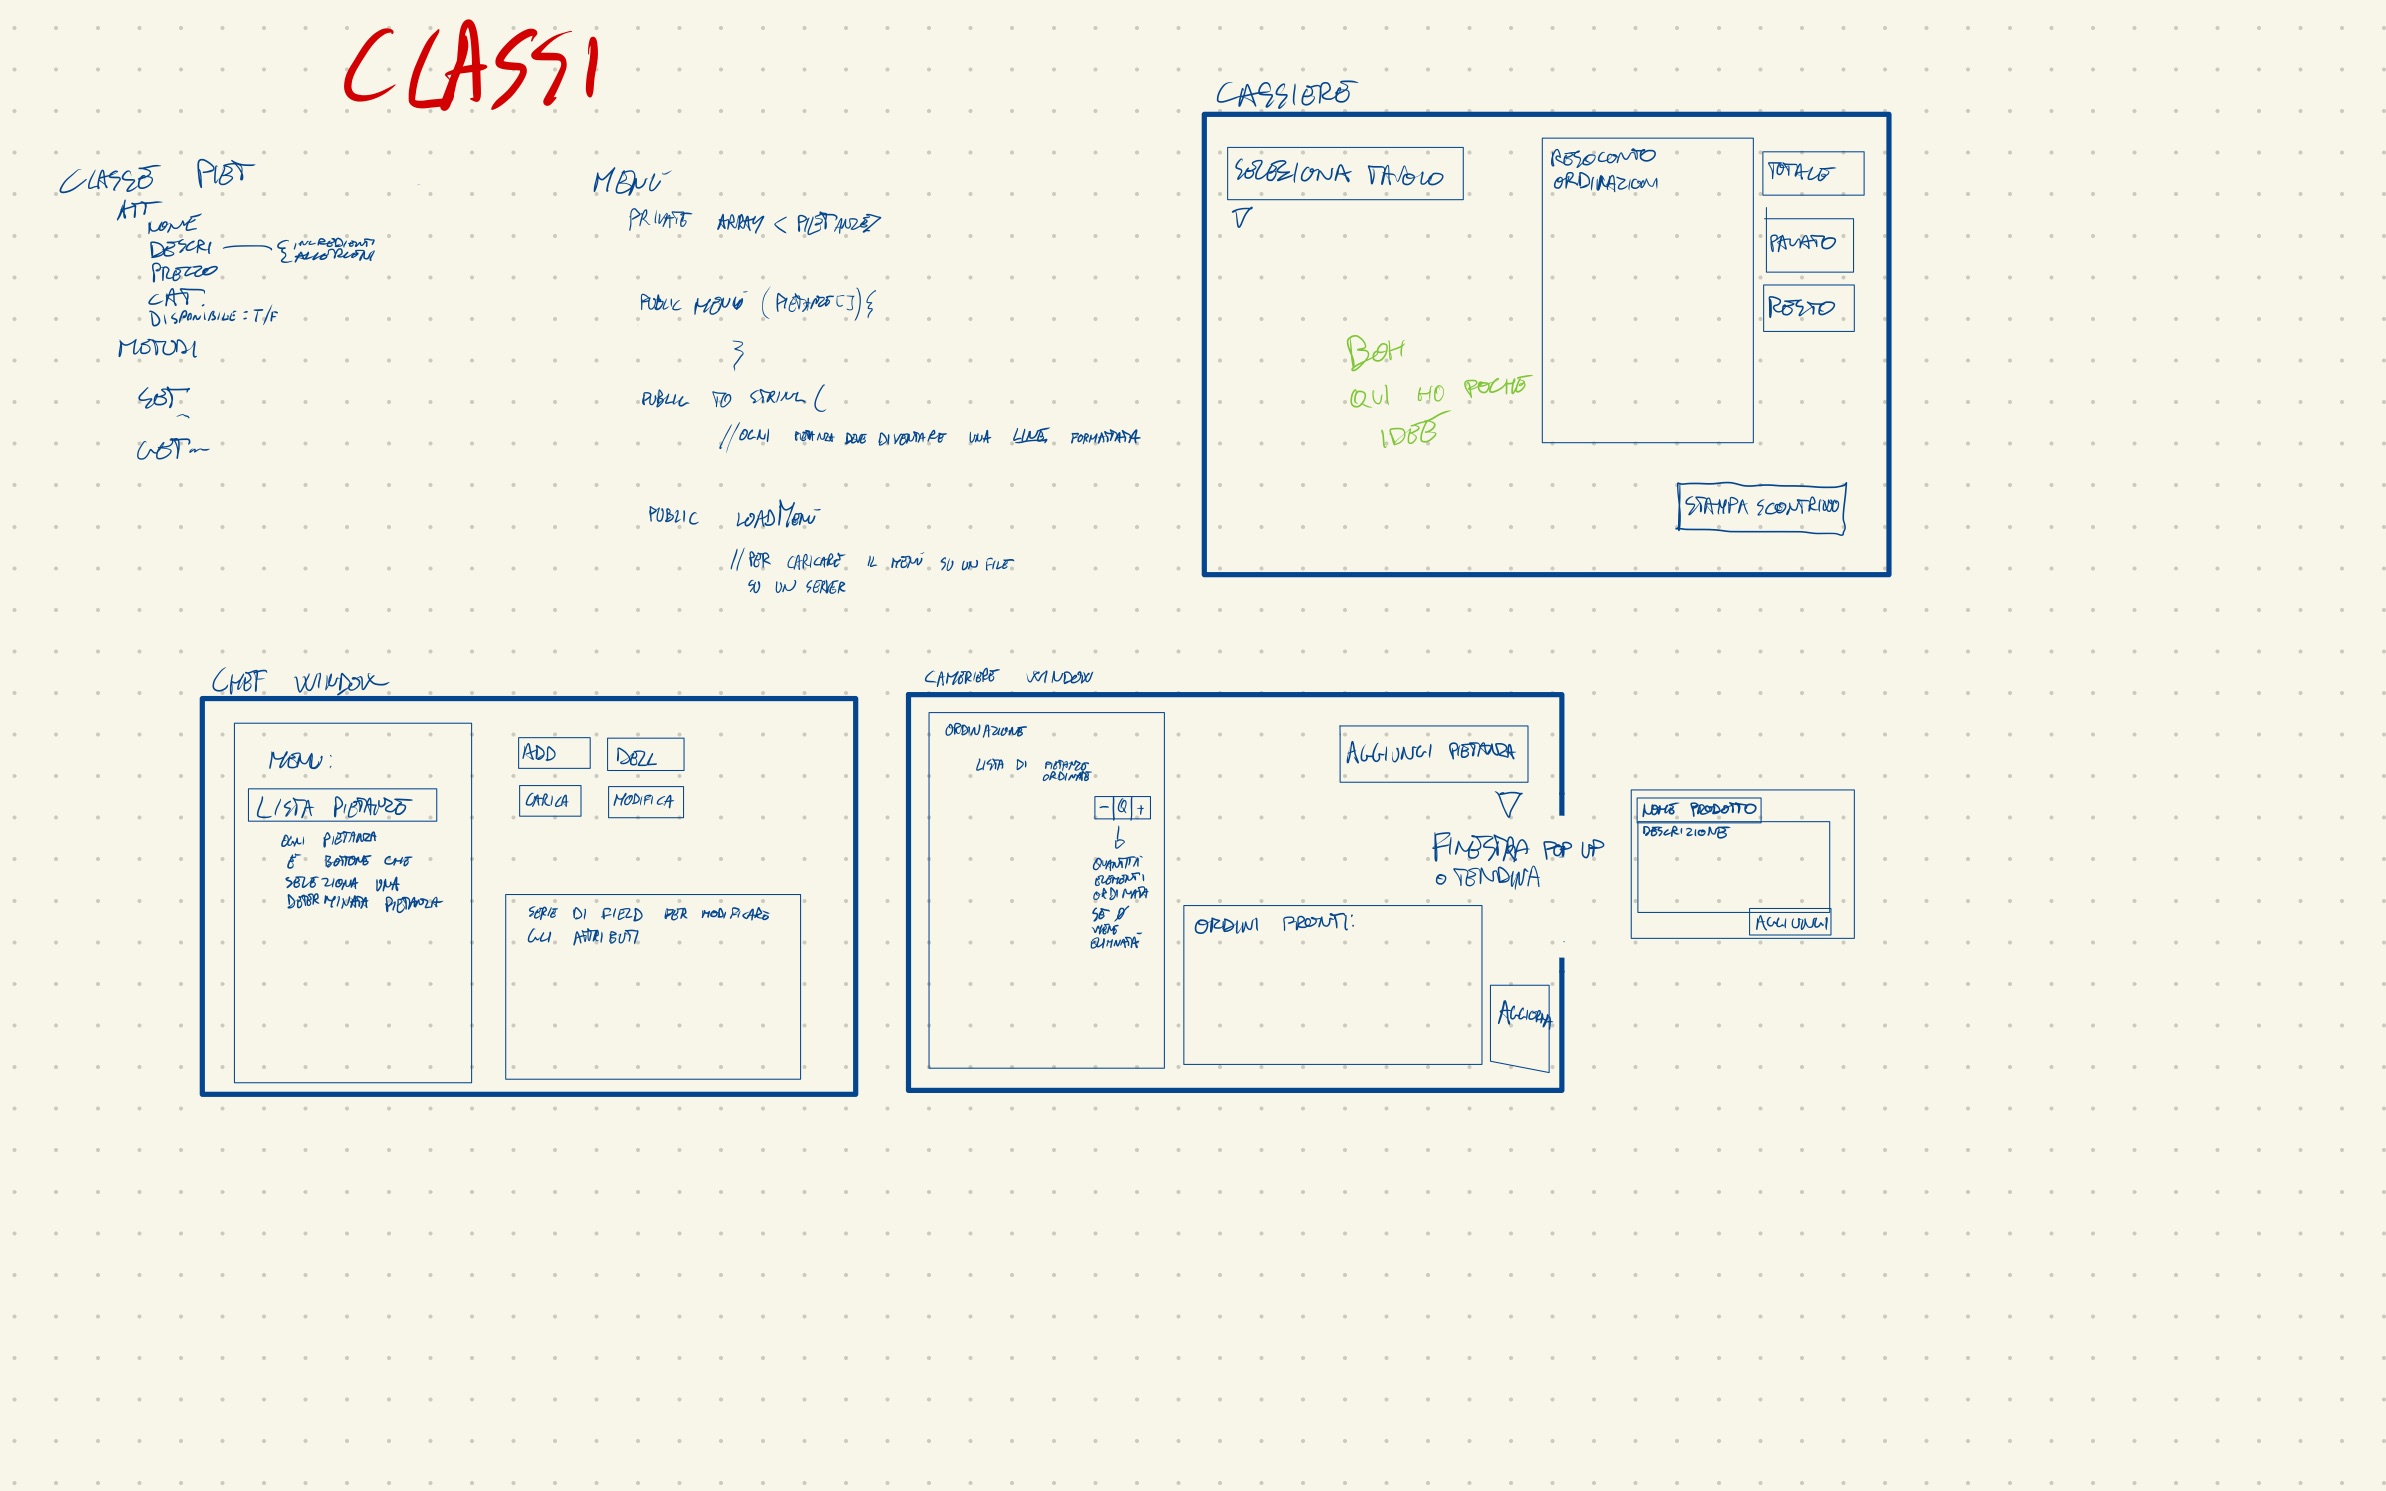 CLASSI
CLASSE PIET
ATT
NOME
DESCRI { INGREDIENTI
{ ALLERGENI
PREZZO
CAT.
DISPONIBILE = T/F
METODI
SET
GET
MENÙ
PRIVATE ARRAY < PIETANZE>
PUBLIC MENÙ (PIETANZE []) {
}
PUBLIC TO STRING (
//OGNI PIETANZA DEVE DIVENTARE UNA LINE. FORMATTATA
PUBLIC LOADMENÙ
// PER CARICARE IL MENÙ SU UN FILE
SU UN SERVER
CASSIERE
SELEZIONA TAVOLO
RESOCONTO
ORDINAZIONI
TOTALE
PAGATO
RESTO
BOH
QUI HO POCHE
IDEE
STAMPA SCONTRINO
CHEF WINDOW
MENU:
LISTA PIETANZE
OGNI PIETANZA
È BOTTONE CHE
SELEZIONA UNA
DETERMINATA PIETANZA
ADD
DELL
CARICA
MODIFICA
SERIE DI FIELD PER MODIFICARE
GLI ATTRIBUTI
CAMERIERE WINDOW
ORDINAZIONE
LISTA DI PIETANZE
ORDINATE
- Q +
QUANTITÀ
ELEMENTI
ORDINATA
SE 0
VIENE
ELIMINATA
AGGIUNGI PIETANZA
FINESTRA POP UP
O TENDINA
ORDINI PRONTI:
AGGIORNA
NOME PRODOTTO
DESCRIZIONE
AGGIUNGI